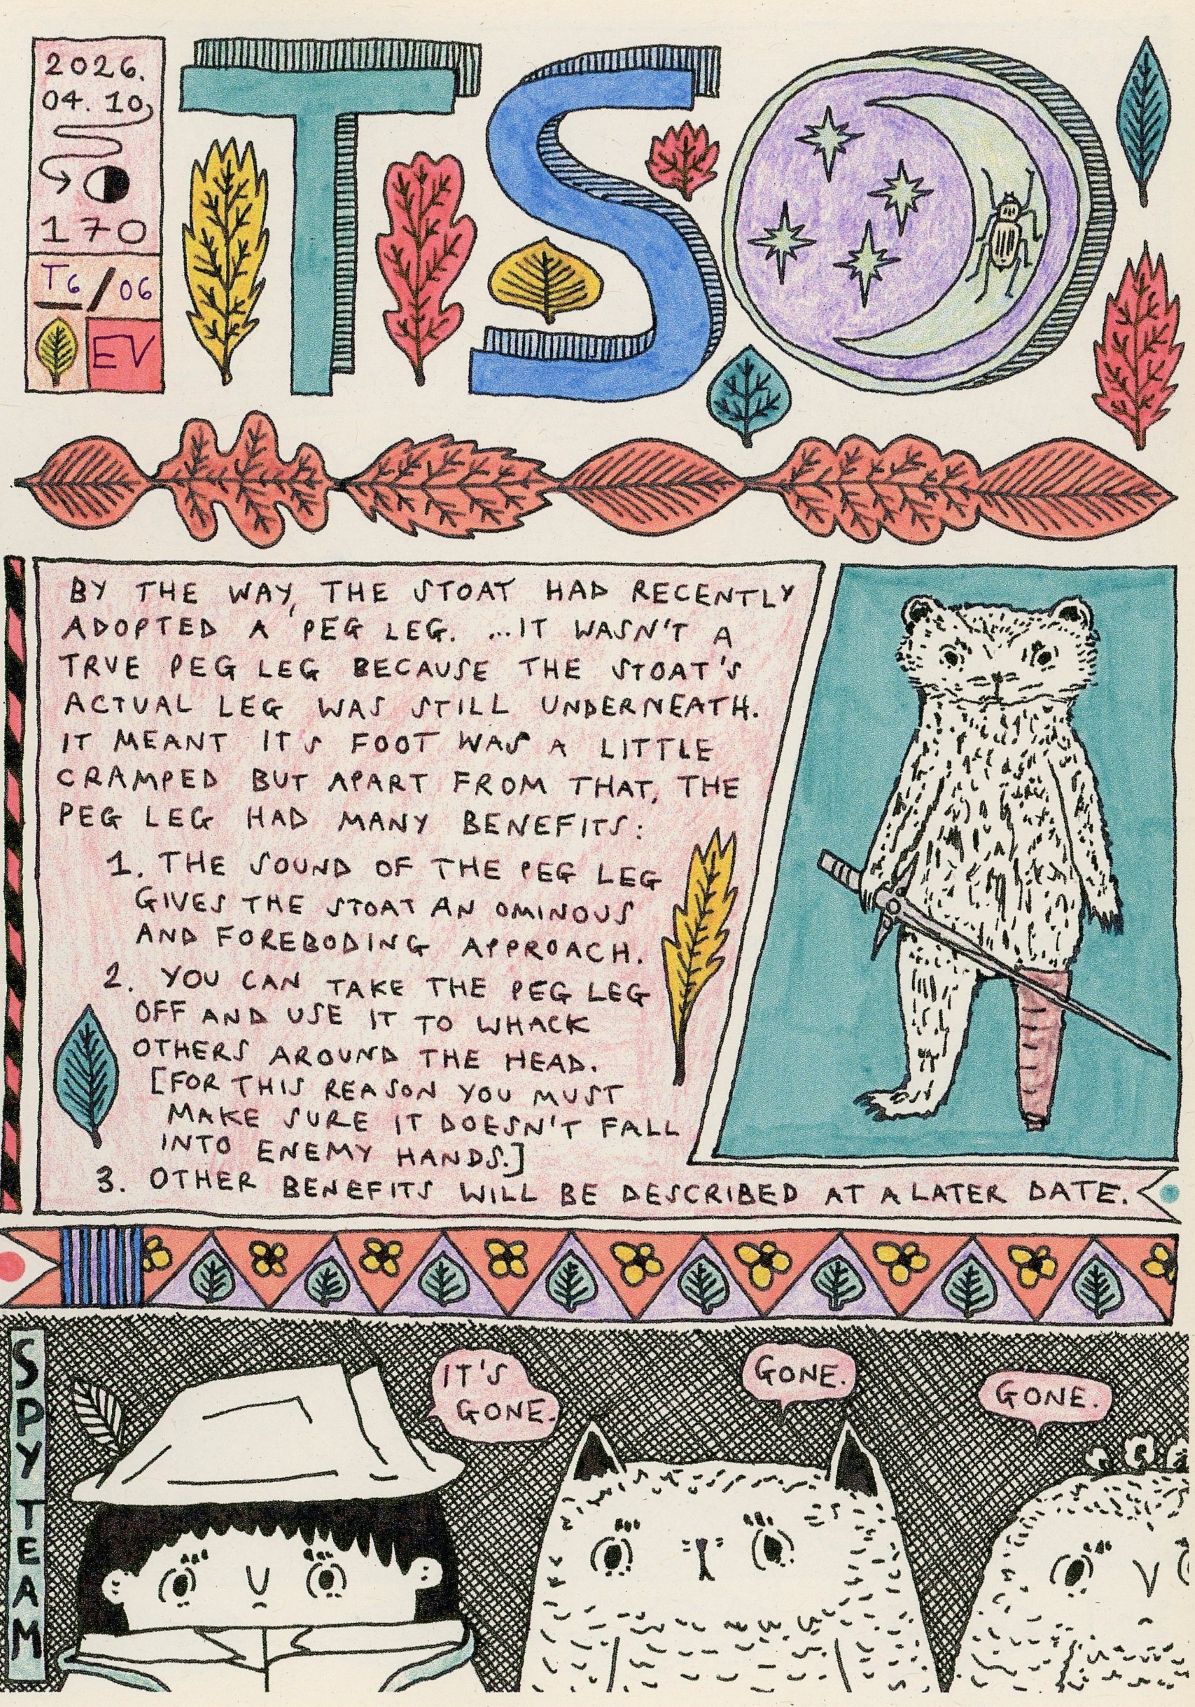 2026.
04. 10,
170
T6/06
EV
TSO
BY THE WAY, THE STOAT HAD RECENTLY
ADOPTED A PEG LEG. ...IT WASN'T A
TRUE PEG LEG BECAUSE THE STOAT'S
ACTUAL LEG WAS STILL UNDERNEATH.
IT MEANT IT'S FOOT WAS A LITTLE
CRAMPED BUT APART FROM THAT, THE
PEG LEG HAD MANY BENEFITS:
1. THE SOUND OF THE PEG LEG
GIVES THE STOAT AN OMINOUS
AND FOREBODING APPROACH.
2. YOU CAN TAKE THE PEG LEG
OFF AND USE IT TO WHACK
OTHERS AROUND THE HEAD.
[FOR THIS REASON YOU MUST
MAKE SURE IT DOESN'T FALL
INTO ENEMY HANDS.]
3. OTHER BENEFITS WILL BE DESCRIBED AT A LATER DATE.
SPY TEAM
IT'S
GONE.
GONE.
GONE.